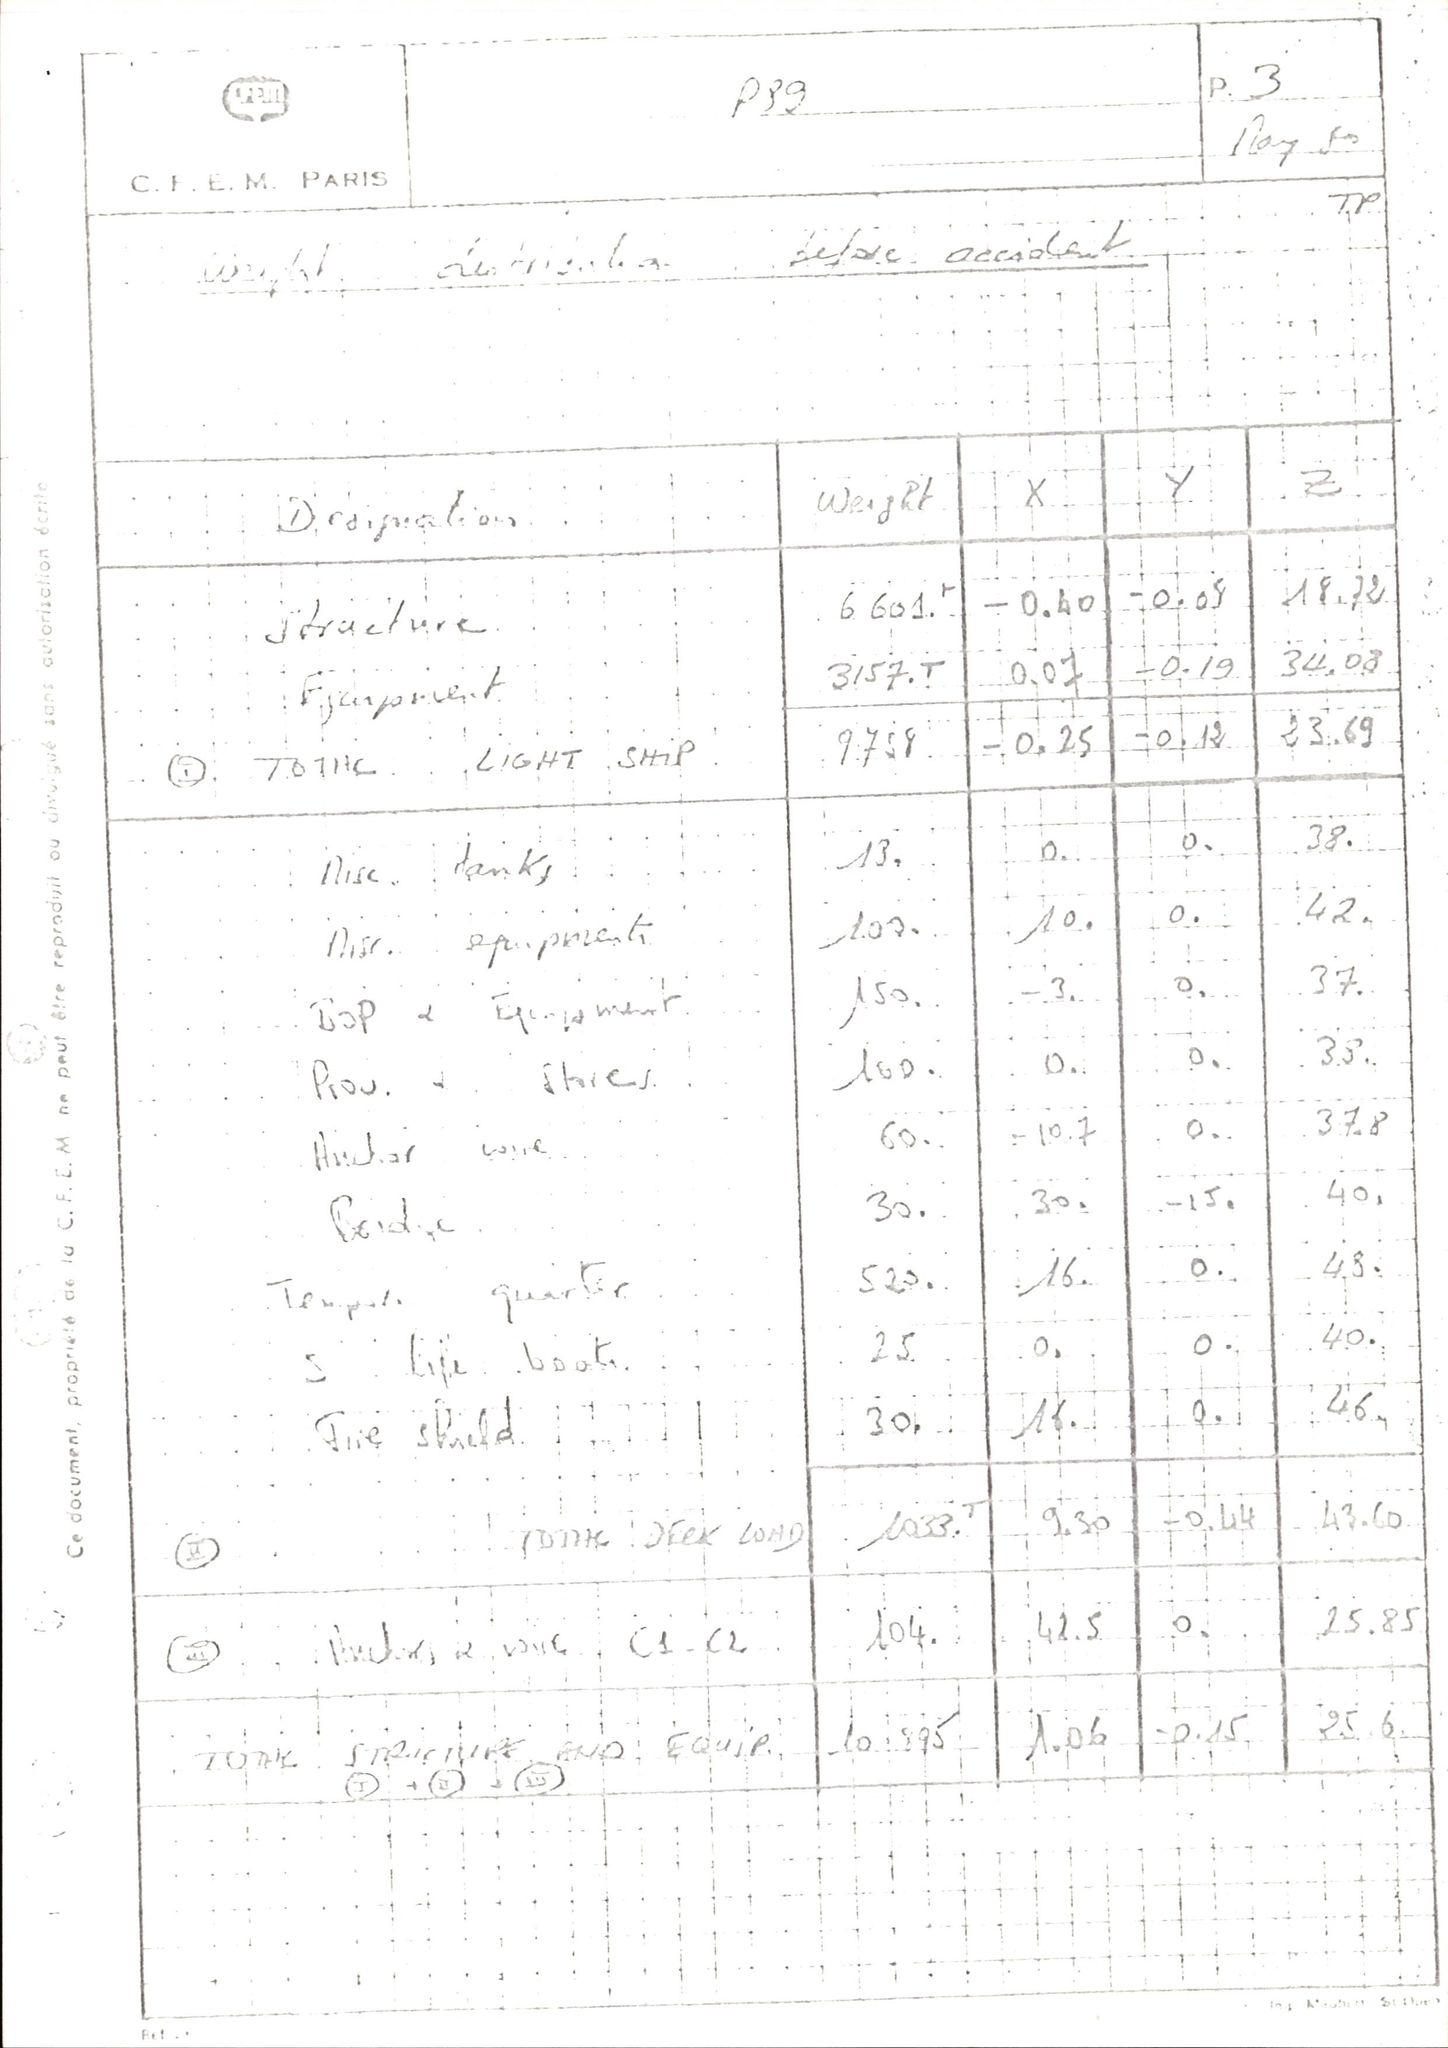 C.F.E.M. PARIS
P89
P. 3
May 80
T.P
Weight distribution before accident
Designation Weight X Y Z
Structure 6 601.T -0.40 -0.08 18.72
Equipment 3157.T 0.07 -0.19 34.08
I TOTAL LIGHT SHIP 9758 -0.25 -0.12 23.69
Misc. tanks 13. 0. 0. 38.
Misc. equipments 10. 0. 42.
BOP & Equipment 150. -3. 0. 37.
Prov. & stores 100. 0. 0. 35.
Anchor wire 60. -10.7 0. 37.8
Bridge 30. 30. -15. 40.
Tempor. quarter 520. 16. 0. 48.
5 life boats 25 0. 0. 40.
Fire shield 30. 16. 0. 46.
II TOTAL DECK LOAD 1033.T 9.30 -0.44 43.60
III Anchors & wire C1-C2 104. 42.5 0. 25.85
TOTAL STRUCTURE AND EQUIP. 10 895 1.06 -0.15 25.6
I + II + III
Ce document, propriété de la C.F.E.M ne peut être reproduit ou divulgué sans autorisation écrite
Ref.